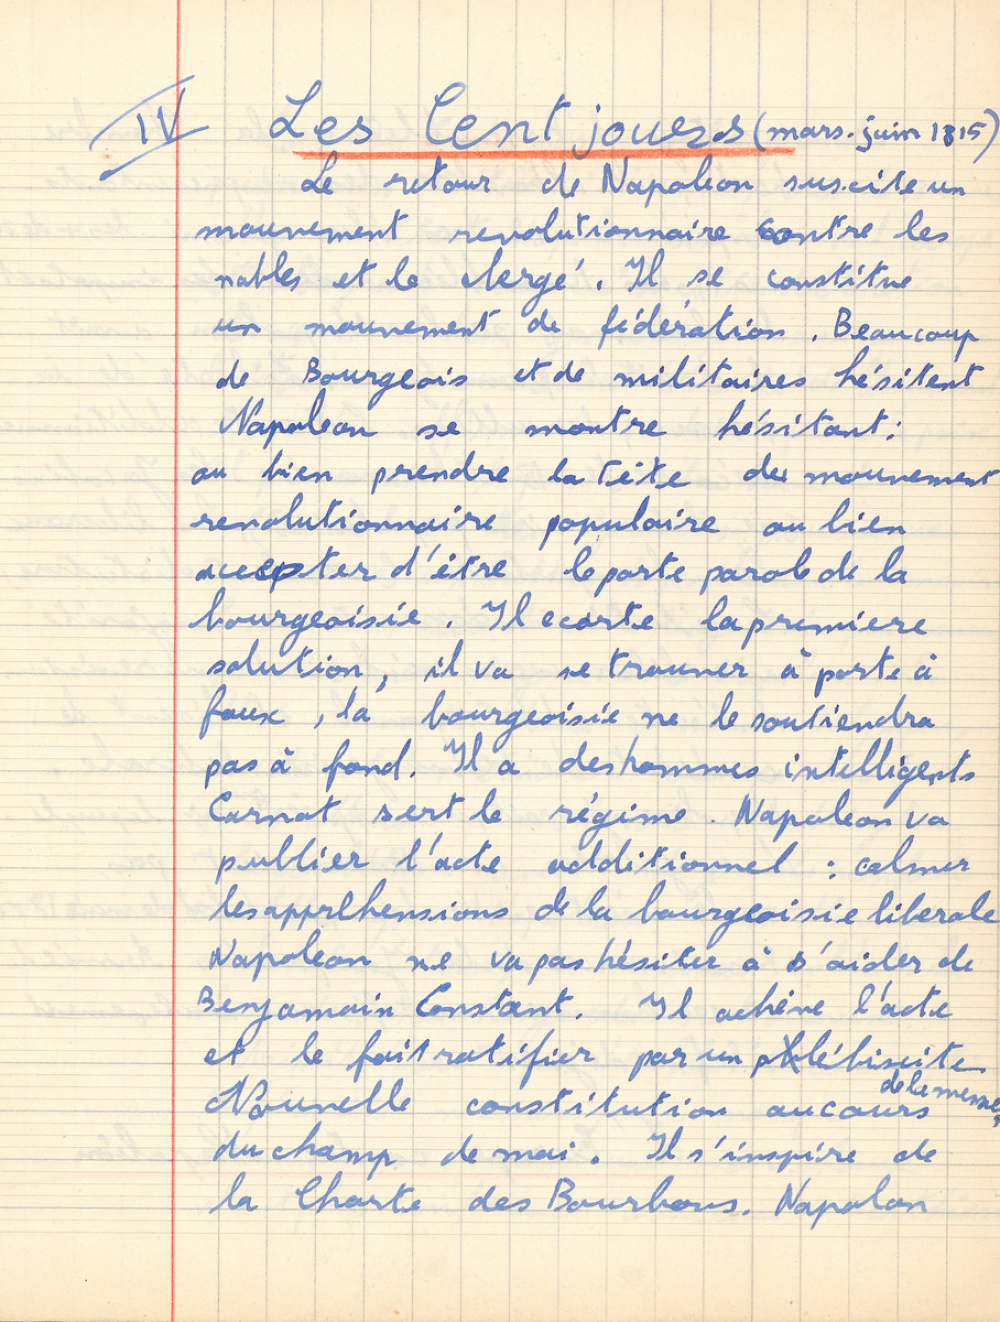 IV Les Cent jours (mars.juin 1815)
Le retour de Napoleon suscite un
mouvement revolutionnaire contre les
nobles et le clergé. Il se constitue
un mouvement de fédération. Beaucoup
de Bourgeois et de militaires hésitent
Napoleon se montre hésitant:
ou bien prendre la tête du mouvement
revolutionnaire populaire ou bien
accepter d'être le porte parole de la
bourgeoisie. Il ecarte la premiere
solution, il va se trouver à porte à
faux, la bourgeoisie ne le soutiendra
pas à fond. Il a des hommes intelligents
Carnot sert le régime. Napoleon va
publier l'acte additionnel : calmer
les apprehensions de la bourgeoisie liberale
Napoleon ne va pas hésiter à s'aider de
Benjamain Constant. Il achève l'acte
et le fait ratifier par un plébiscite
Nouvelle constitution au cours
du champ de mai. Il s'inspire de
la Charte des Bourbons. Napolon